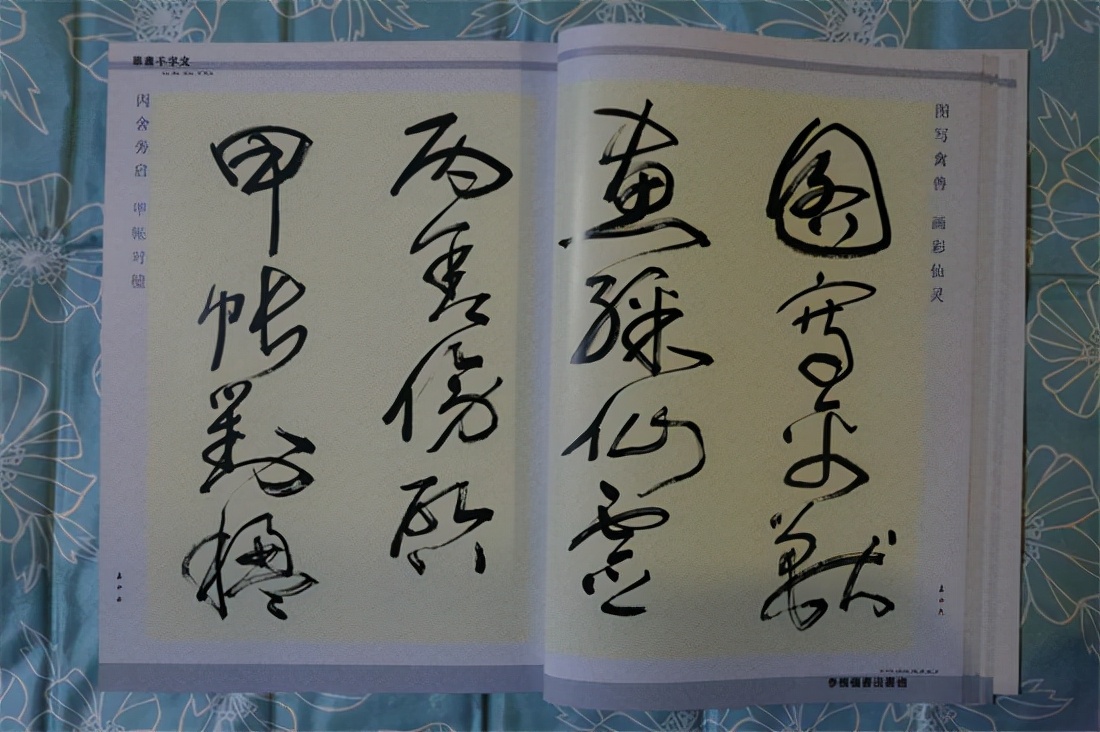 图写禽兽 画彩仙灵
圖寫禽獸
畫綵仙靈
丙舍傍啟
甲帳對楹
丙舍旁启 甲帐对楹
千字文